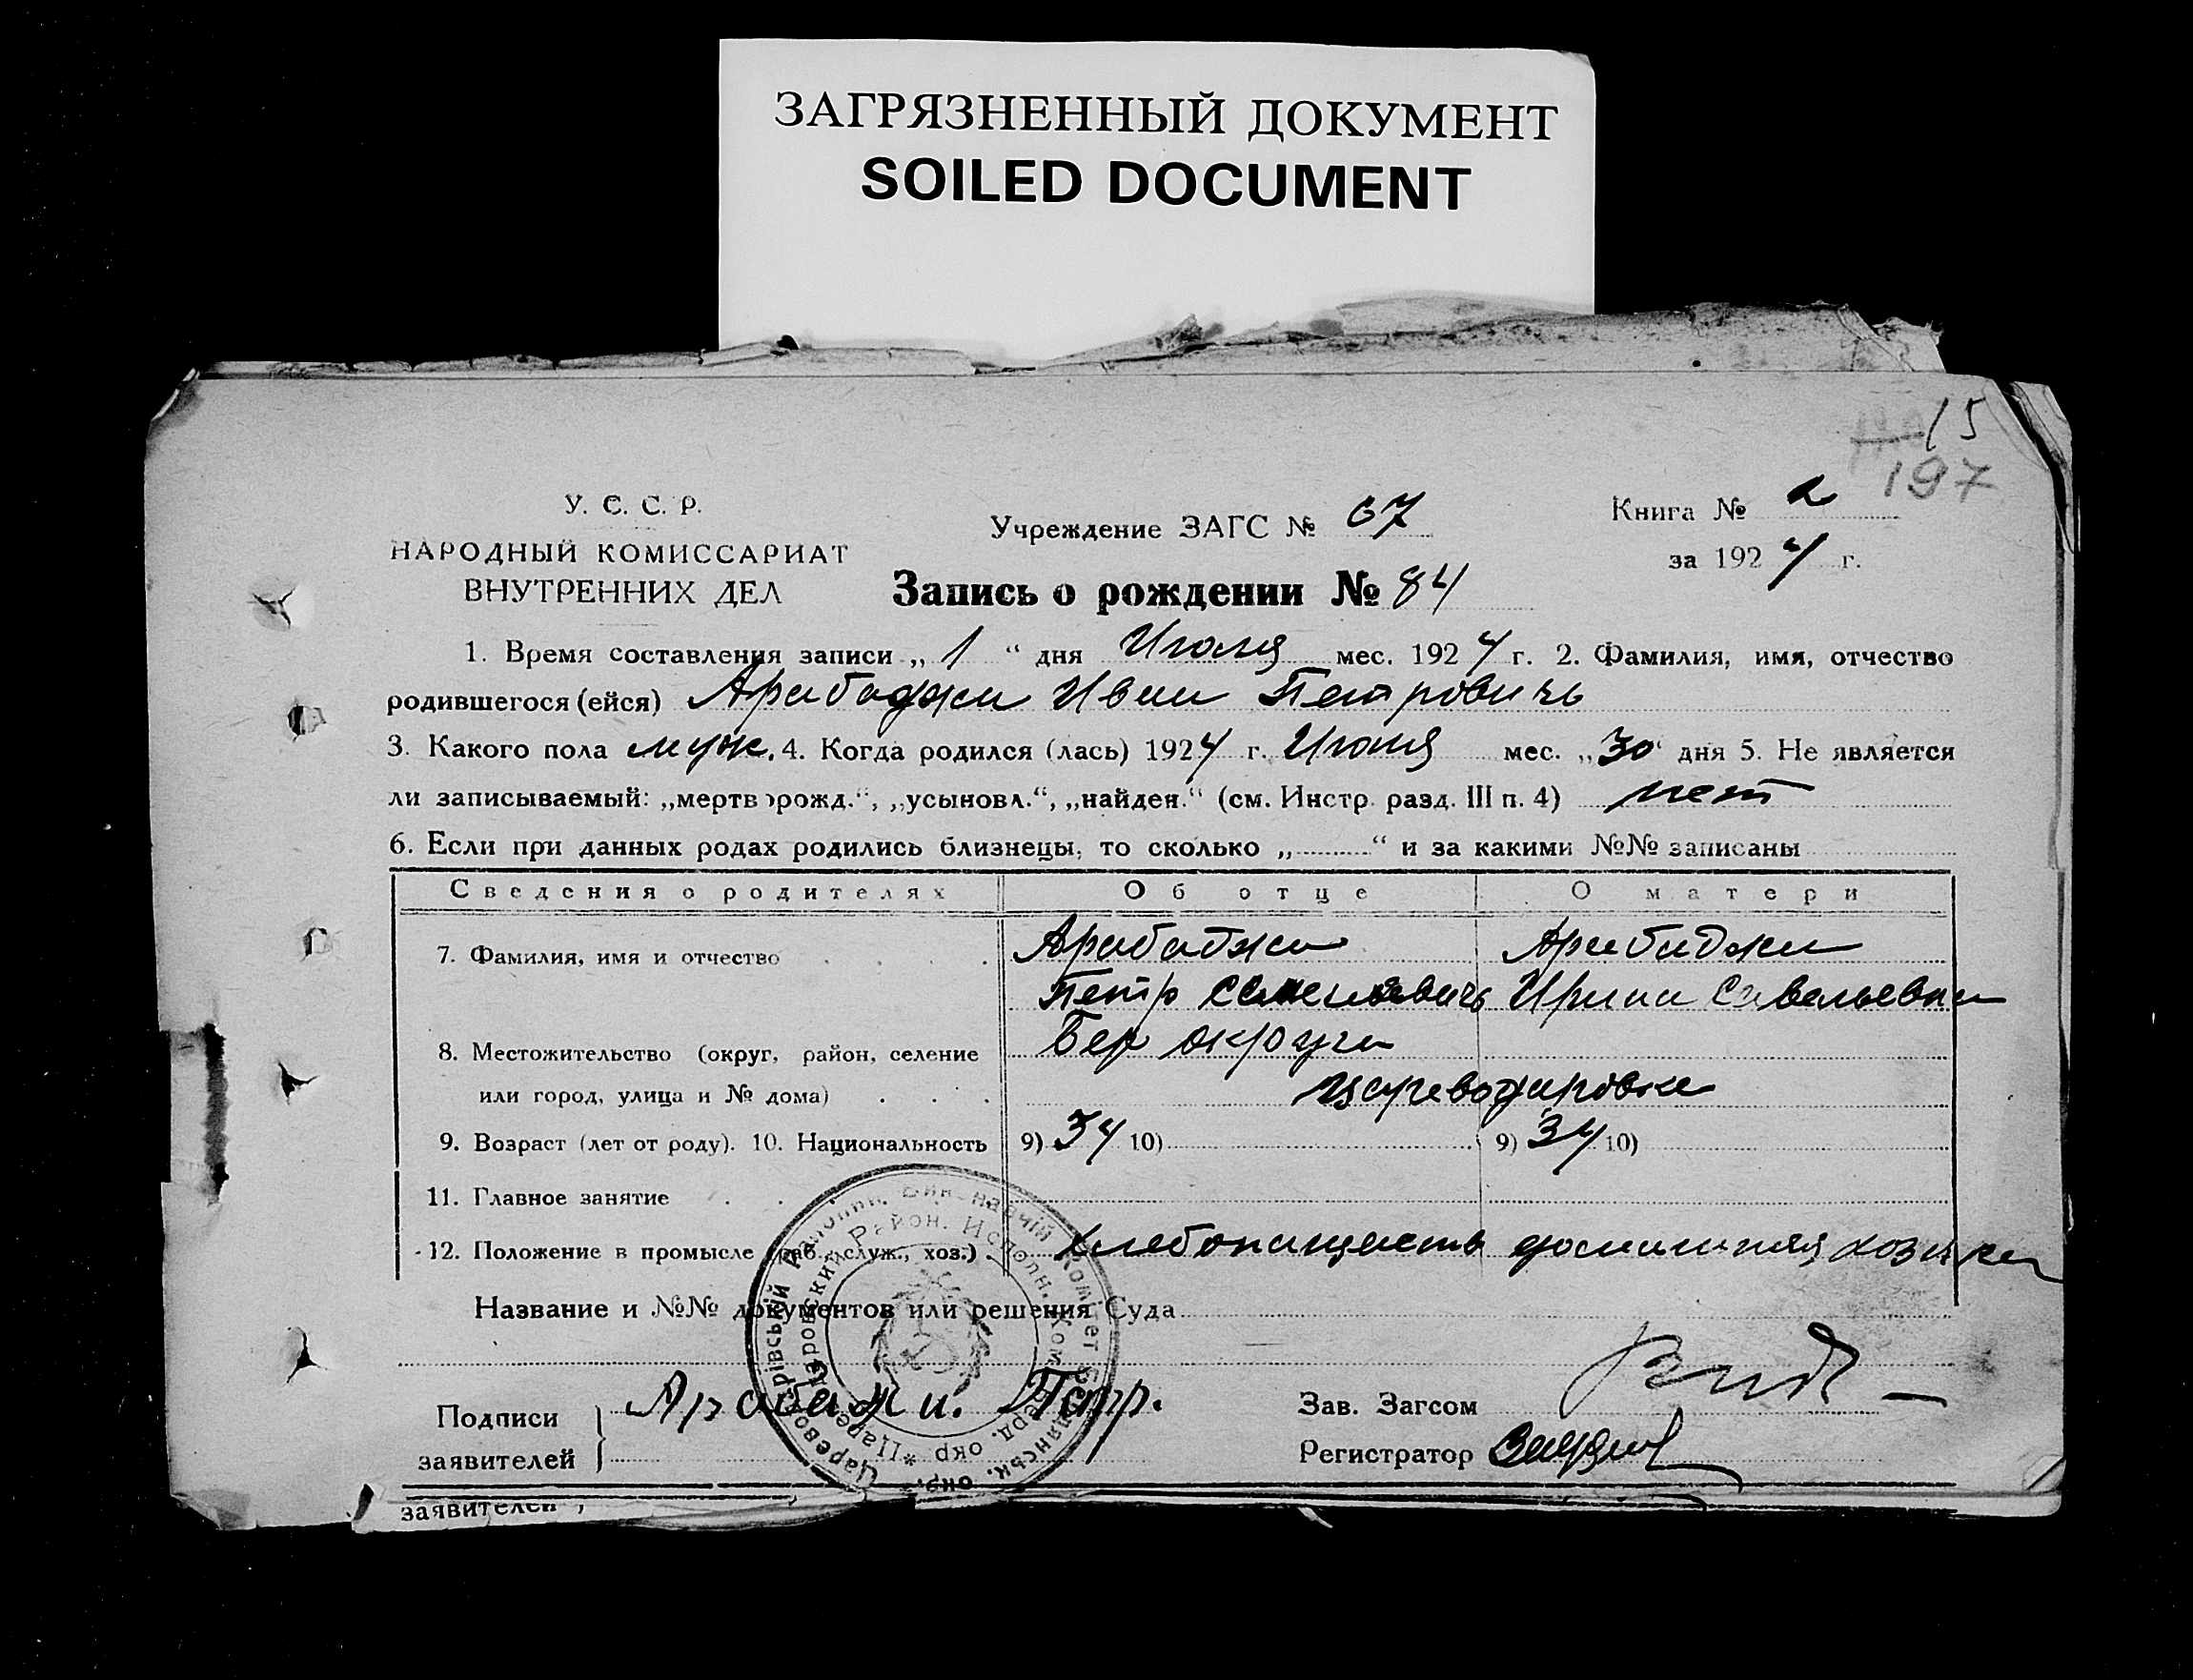 ЗАГРЯЗНЕННЫЙ ДОКУМЕНТ
SOILED DOCUMENT
15
197
У. С. С. Р.
НАРОДНЫЙ КОМИССАРИАТ
ВНУТРЕННИХ ДЕЛ
Учреждение ЗАГС № 67
Книга № 2
за 1924 г.
Запись о рождении № 84
1. Время составления записи „ 1 “ дня Июля мес. 1924 г. 2. Фамилия, имя, отчество
родившегося (ейся) Арабаджи Иван Петровичь
3. Какого пола муж. 4. Когда родился (лась) 1924 г. Июня мес. „30“ дня 5. Не является
ли записываемый: „мерткорожд.“, „усыновл.“, „найден.“ (см. Инстр. разд. III п. 4) нет
6. Если при данных родах родились близнецы, то сколько „ “ и за какими №№ записаны
Сведения о родителях Об отце О матери
7. Фамилия, имя и отчество Арабаджи Арабаджи
Петр Семеновичь Ирина Савельевна
8. Местожительство (округ, район, селение Бер округи
или город, улица и № дома) Цареводаровка
9. Возраст (лет от роду). 10. Национальность 9) 34 10) 9) 34 10)
11. Главное занятие
12. Положение в промысле (раб., служ., хоз.) хлебопашество домашняя хозяйка
Название и №№ документов или решения Суда
Подписи
заявителей
Арабажи. Петр.
Зав. Загсом
Регистратор
заявителей